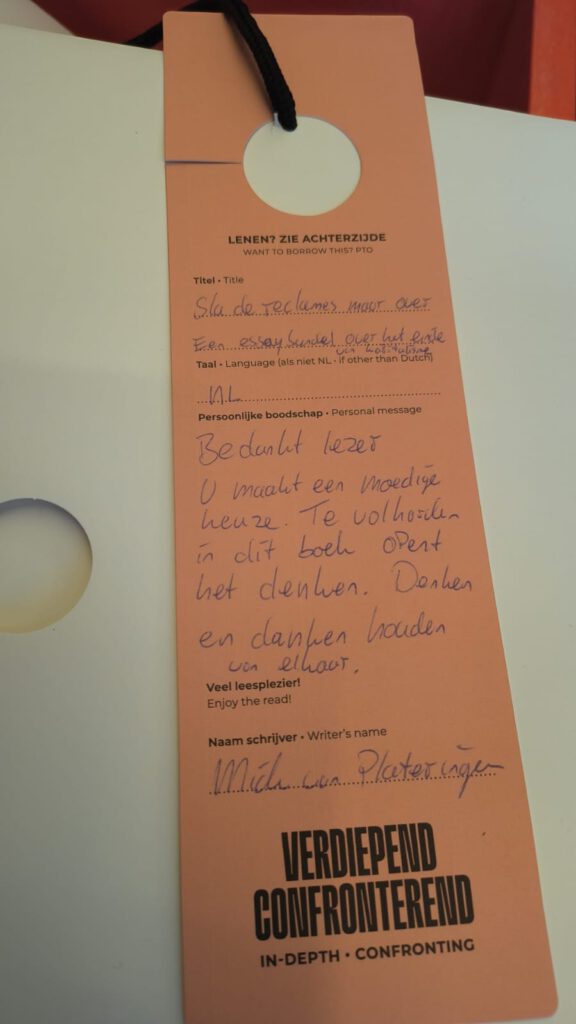 LENEN? ZIE ACHTERZIJDE
WANT TO BORROW THIS? PTO
Titel • Title
Sla de reclames maar over
Een essaybundel over het einde
van
Taal • Language (als niet NL • if other than Dutch)
NL
Persoonlijke boodschap • Personal message
Bedankt lezer
U maakt een moedige
keuze. Te volharden
in dit boek opent
het denken. Denken
en danken houden
van elkaar.
Veel leesplezier!
Enjoy the read!
Naam schrijver • Writer's name
van Plateringen
VERDIEPEND
CONFRONTEREND
IN-DEPTH • CONFRONTING